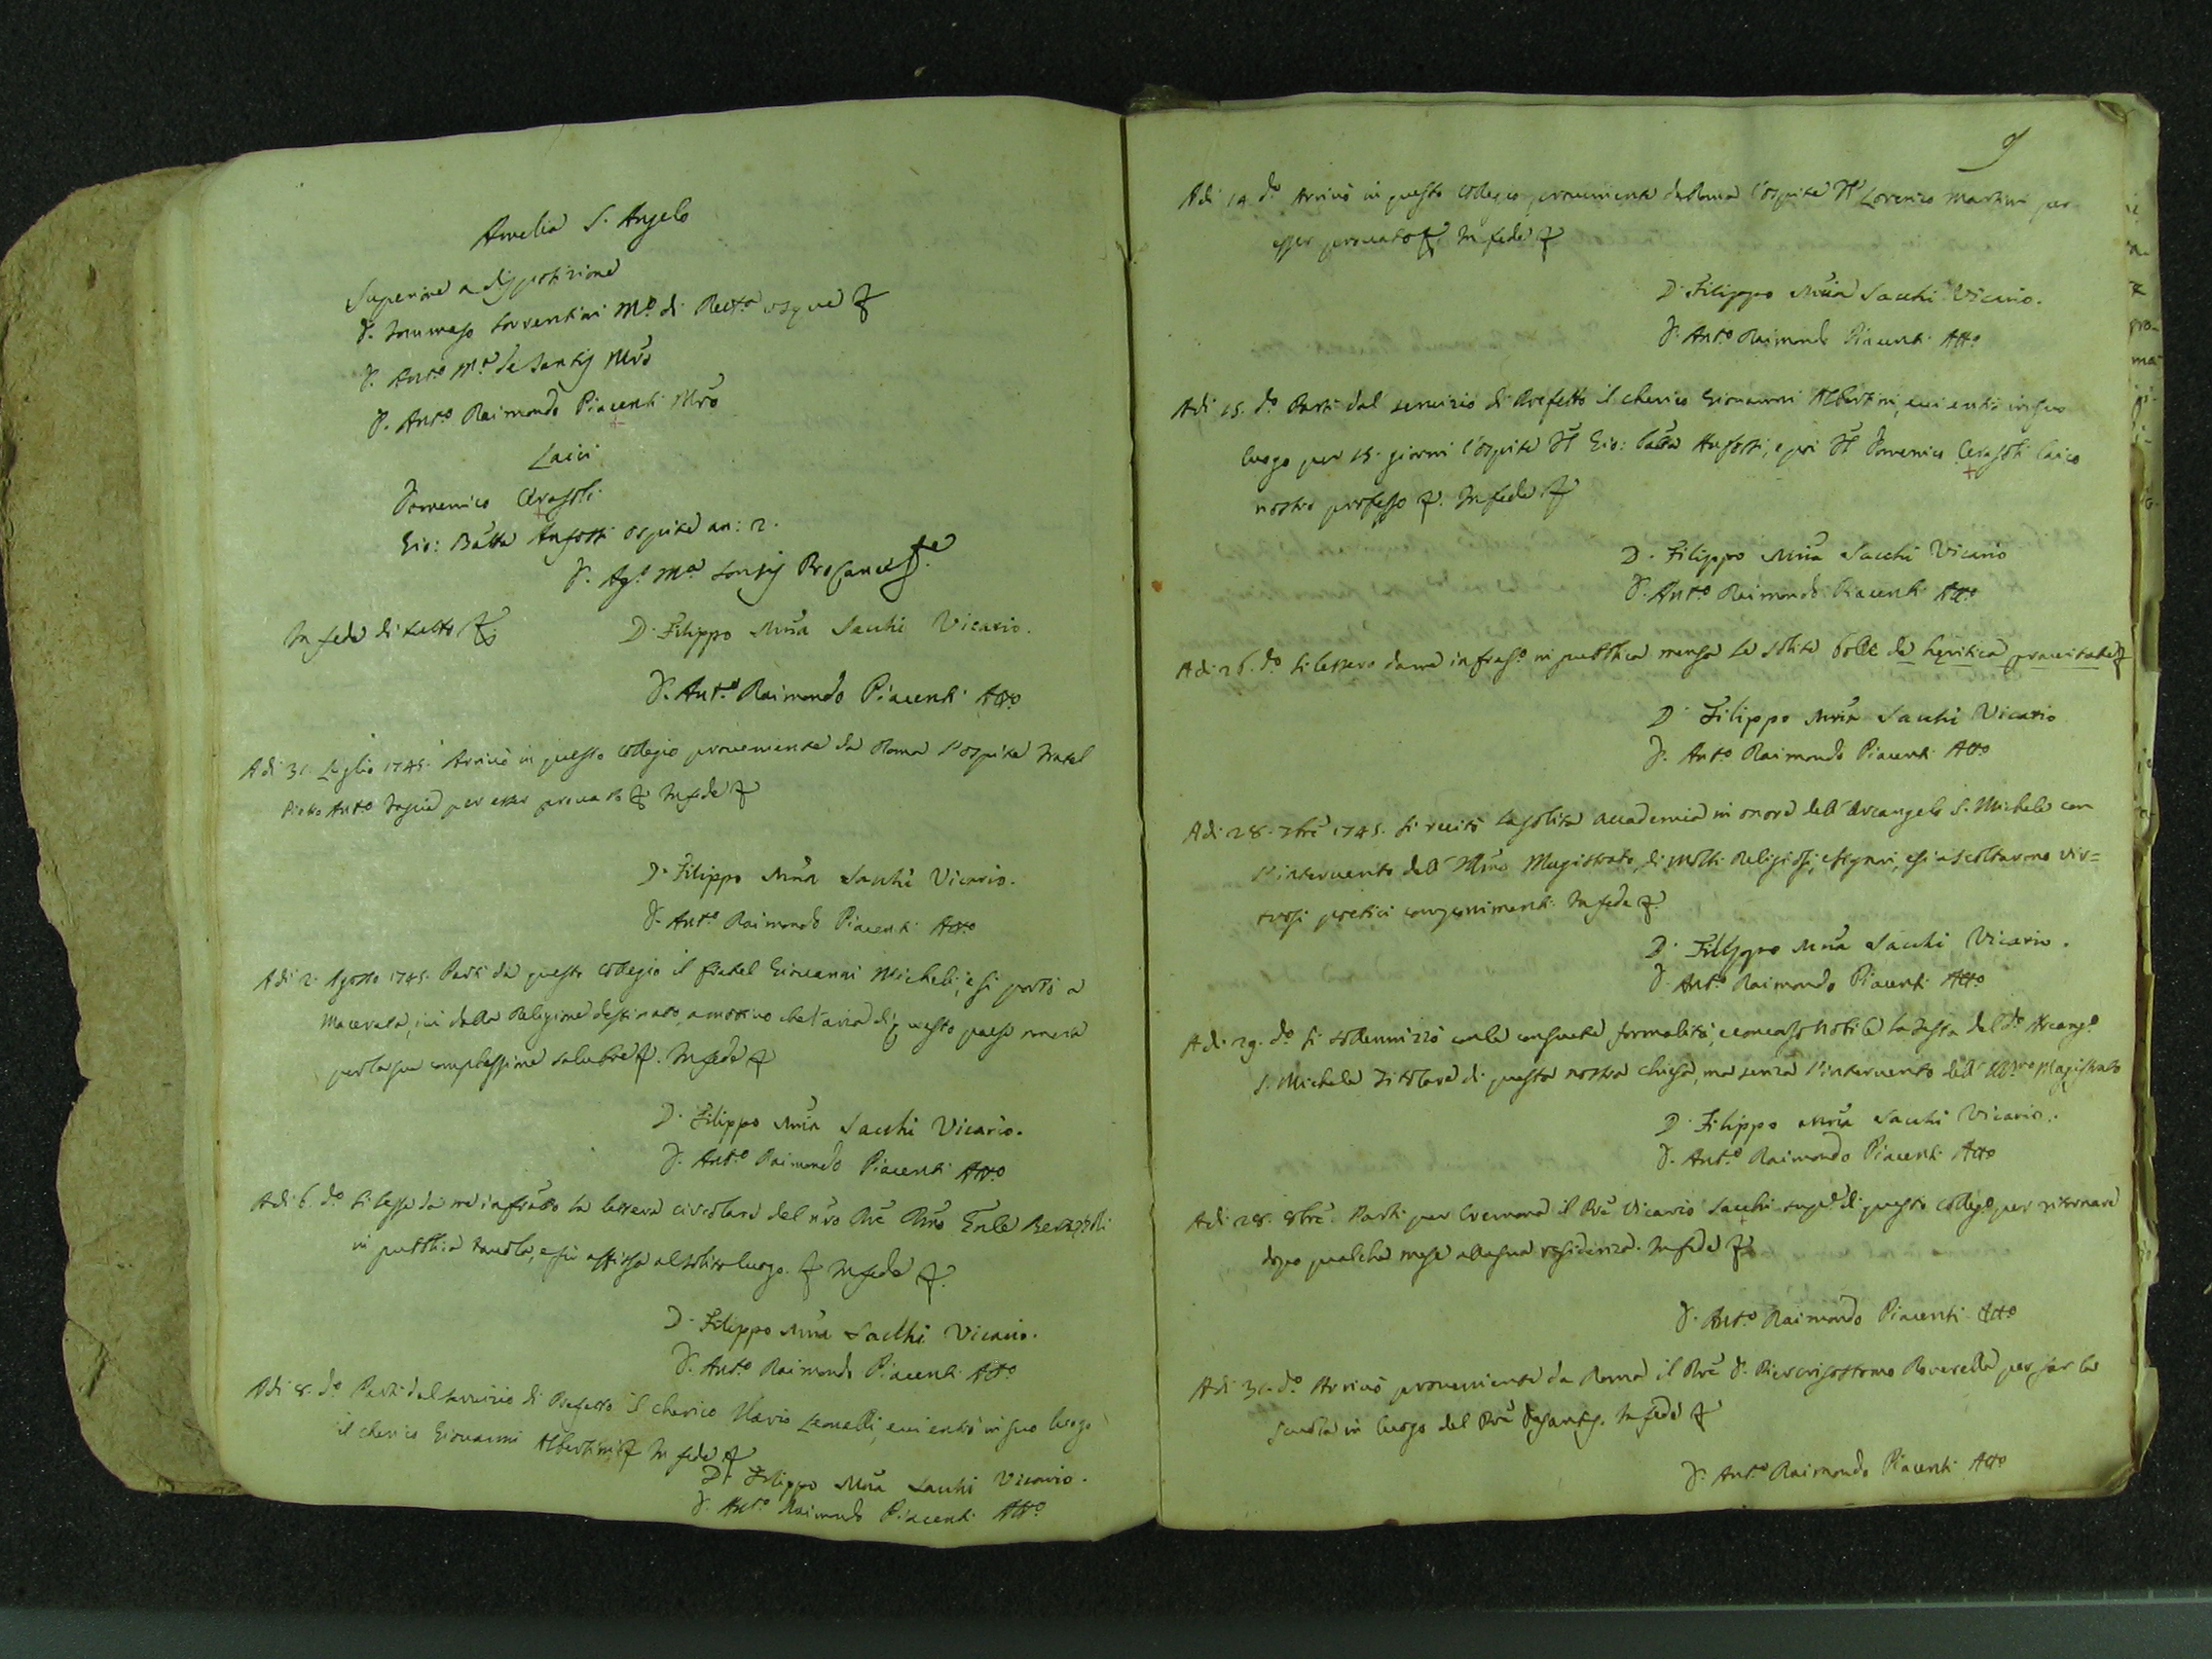 Amelia S. Angelo
Superiore a disposizione
D. Tommaso Sorrentini M.o di Rett.a usque &
D. Ant.o M.a de Santis Mrõ
D. Ant.o Raimondo Piacenti Mrõ
Laici
Domenico Cerasoli
Gio: Batta Anfossi ospite an: 2.
D. Ag.o M.a Lonsis
In fede di tutto &
D. Filippo Mria Sacchi Vicario.
D. Ant.o Raimondo Piacenti Att.o
A di 31. Luglio 1745. Arrivò in questo Collegio proveniente da Roma l'ospite Fratel
Pietro Ant.o per esser provato & In fede &
D. Filippo Mria Sacchi Vicario.
D. Ant.o Raimondo Piacenti Att.o
A di 2. Agosto 1745. Partì da questo Collegio il fratel Giovanni Micheli, e si portò a
Macerata, ivi dalla Religione destinato, a motivo che l'aria di questo paese non era
per la sua complessione salubre &. In fede &
D. Filippo Mria Sacchi Vicario.
D. Ant.o Raimondo Piacenti Att.o
A di 6. d.o Si lesse da me infratto la lettera circolare del nrõ Rrẽ Rmõ Gnle
in pubblica tavola, e fu affissa al solito luogo. & In fede &.
D. Filippo Mria Sacchi Vicario.
D. Ant.o Raimondo Piacenti Att.o
A di 8. d.o Partì dal servizio di Prefetto il cherico Flavio Leonelli, e vi entrò in suo luogo
il cherico Giovanni Albertini & In fede &
D. Filippo Mria Sacchi Vicario.
D. Ant.o Raimondo Piacenti Att.o
9
A di 14. d.o Arrivò in questo Collegio proveniente da Roma l'ospite Fr. Lorenzo Martini per
esser provato & In fede &
D. Filippo Mria Sacchi Vicario.
D. Ant.o Raimondo Piacenti Att.o
A di 15. d.o Partì dal servizio di Prefetto il cherico Giovanni Albertini, e vi entrò in suo
luogo per 15. giorni l'ospite Fr. Gio: Batta Anfossi, e poi Fr. Domenico Cerasoli laico
nostro professo &. In fede &
D. Filippo Mria Sacchi Vicario
D. Ant.o Raimondo Piacenti Att.o
A di 26. d.o Si lessero da me infras.o in pubblica mensa le solite bolle de heretica pravitate &
D. Filippo Mria Sacchi Vicario
D. Ant.o Raimondo Piacenti Att.o
A di 28. 7brẽ 1745. Si recitò la solita accademia in onore dell'Arcangelo S. Michele con
l'intervento dell'Illmo Magistrato, di molti Religiosi, e signori, e si ascoltarono vir=
tuosi poetici componimenti. In fede &.
D. Filippo Mria Sacchi Vicario.
D. Ant.o Raimondo Piacenti Att.o
A di 29. d.o Si solennizzò con la consueta formalità, e concorso nobile la festa del d.o Arcang.o
S. Michele Titolare di questa nostra chiesa, ma senza l'intervento dell'Ill.mo Magistrato
D. Filippo Mria Sacchi Vicario.
D. Ant.o Raimondo Piacenti Att.o
A di 28. 8brẽ. Partì per Cremona il Prẽ Vicario Sacchi sup.e di questo Colleg.o per ritornare
dopo qualche mese alla sua residenza. In fede &
D. Ant.o Raimondo Piacenti Att.o
A di 31. d.o Arrivò proveniente da Roma il Prẽ D. Piercrisostomo Roverella per far la
scuola in luogo del Prẽ Desantis. In fede &
D. Ant.o Raimondo Piacenti Att.o